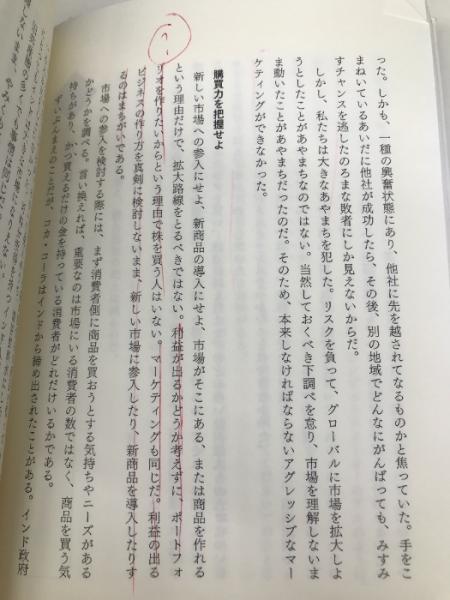 った。しかも、一種の興奮状態にあり、他社に先を越されてなるものかと焦っていた。手をこ
まねいているあいだに他社が成功したら、その後、別の地域でどんなにがんばっても、みすみ
すチャンスを逃したのろまな敗者にしか見えないからだ。
しかし、私たちは大きなあやまちを犯した。リスクを負って、グローバルに市場を拡大しよ
うとしたことがあやまちなのではない。当然しておくべき下調べを怠り、市場を理解しないま
ま動いたことがあやまちだったのだ。そのため、本来しなければならないアグレッシブなマー
ケティングができなかった。
購買力を把握せよ
新しい市場への参入にせよ、新商品の導入にせよ、市場がそこにある、または商品を作れる
という理由だけで、拡大路線をとるべきではない。利益が出るかどうか考えずに、ポートフォ
リオを作りたいからという理由で株を買う人はいない。マーケティングも同じだ。利益の出る
ビジネスの作り方を真剣に検討しないまま、新しい市場に参入したり、新商品を導入したりす
るのはまちがいである。
市場への参入を検討する際には、まず消費者側に商品を買おうとする気持ちやニーズがある
かどうかを調べる。言い換えれば、重要なのは市場にいる消費者の数ではなく、商品を買う気
持ちがあり、かつ買えるだけの金を持っている消費者がどれだけいるかである。
ずいぶんまえのことだが、コカ・コーラはインドから締め出されたことがある。インド政府